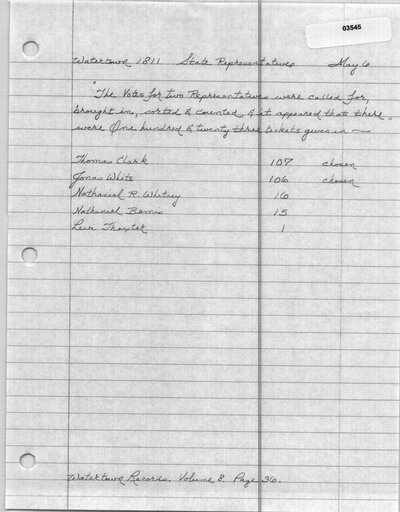 03545
Watertown 1811 State Representatives May 6
"The Votes for two Representatives were called for,
brought in, sorted & counted, & it appeared that there
were One hundred & twenty three tickets given in ~"
Thomas Clark 107 chosen
Jonas White 106 chosen
Nathaniel R. Whitney 16
Nathaniel Bemis 15
Levi Thaxter 1
Watertown Records. Volume 8. Page 36.